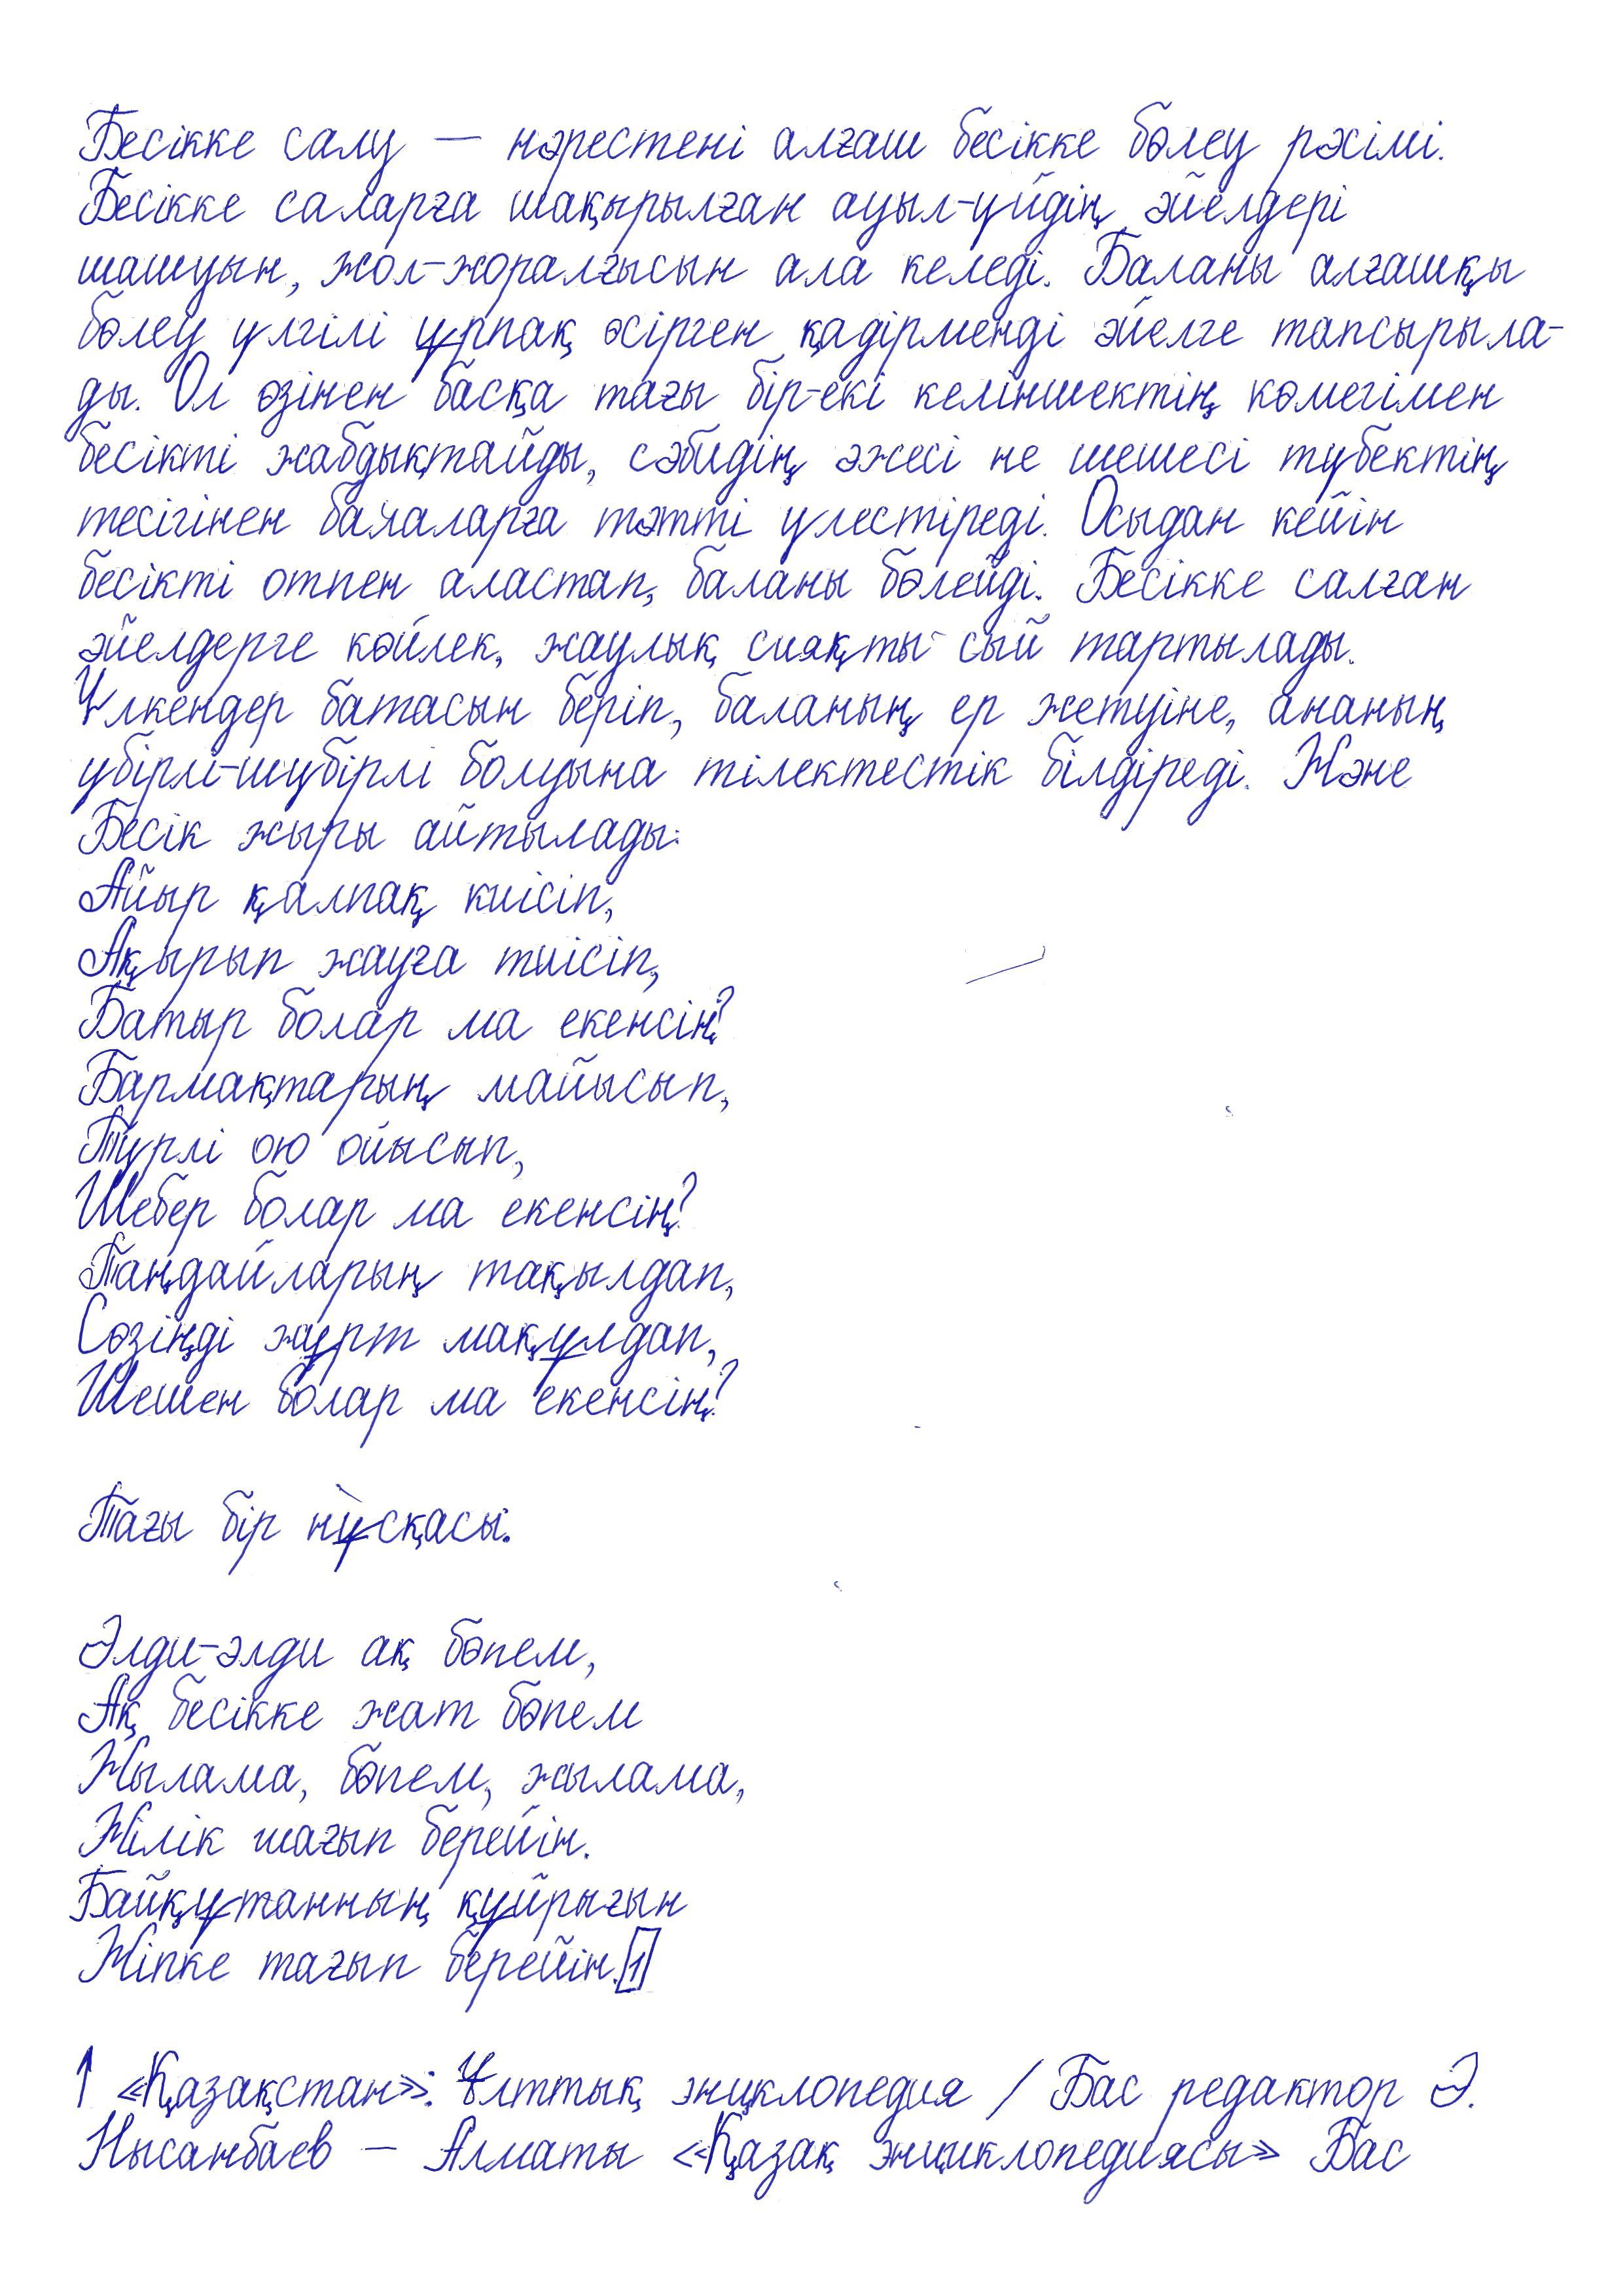 Бесікке салу — нәрестені алғаш бесікке бөлеу рәсімі.
Бесікке саларға шақырылған ауыл-үйдің әйелдері
шашуын, жол-жоралғысын ала келеді. Баланы алғашқы
бөлеу үлгілі ұрпақ өсірген қадірменді әйелге тапсырыла-
ды. Ол өзінен басқа тағы бір-екі келіншектің көмегімен
бесікті жабдықтайды, сәбидің әжесі не шешесі түбектің
тесігінен балаларға тәтті үлестіреді. Осыдан кейін
бесікті отпен аластап, баланы бөлейді. Бесікке салған
әйелдерге көйлек, жаулық сияқты сый тартылады.
Үлкендер батасын беріп, баланың ер жетуіне, ананың
үбірлі-шүбірлі болуына тілектестік білдіреді. Және
Бесік жыры айтылады:
Айыр қалпақ киісіп,
Ақырып жауға тиісіп,
Батыр болар ма екенсің?
Бармақтарың майысып,
Түрлі ою ойысып,
Шебер болар ма екенсің?
Таңдайларың тақылдап,
Сөзіңді жұрт мақұлдап,
Шешен болар ма екенсің?
Тағы бір нұсқасы.
Әлди-әлди ақ бөпем,
Ақ бесікке жат бөпем
Жылама, бөпем, жылама,
Жілік шағып берейін.
Байқұтанның құйрығын
Жіпке тағып берейін.[1]
↑ «Қазақстан»: Ұлттық энцклопедия / Бас редактор Ә.
Нысанбаев — Алматы «Қазақ энциклопедиясы» Бас